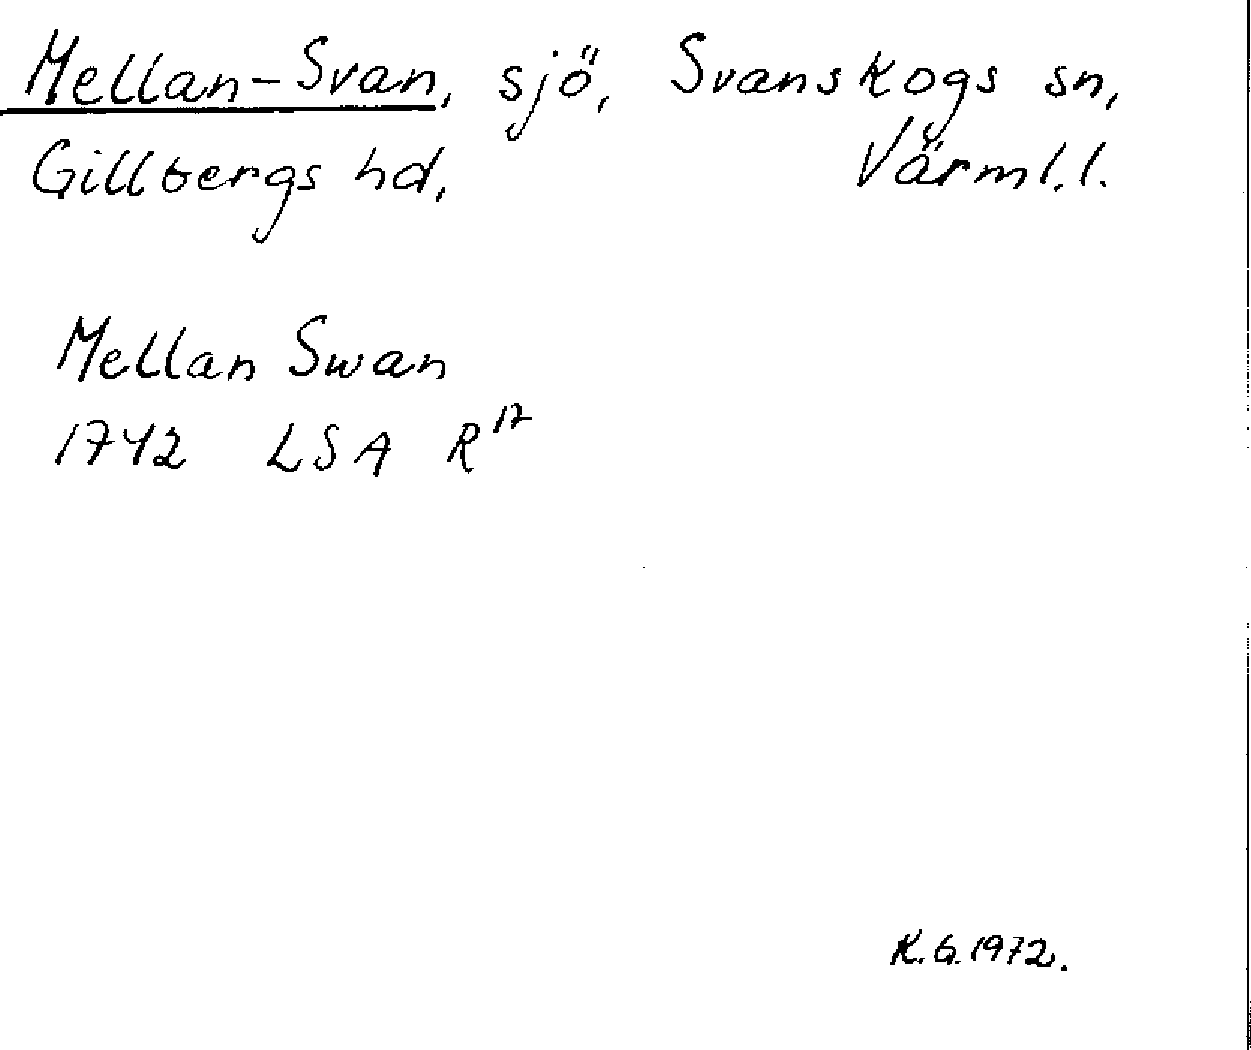 Mellan-Svan, sjö, Svanskogs sn,
Gillbergs hd. Värml. l.
Mellan Swan
1742 LSA R¹⁷
K.G. 1972.